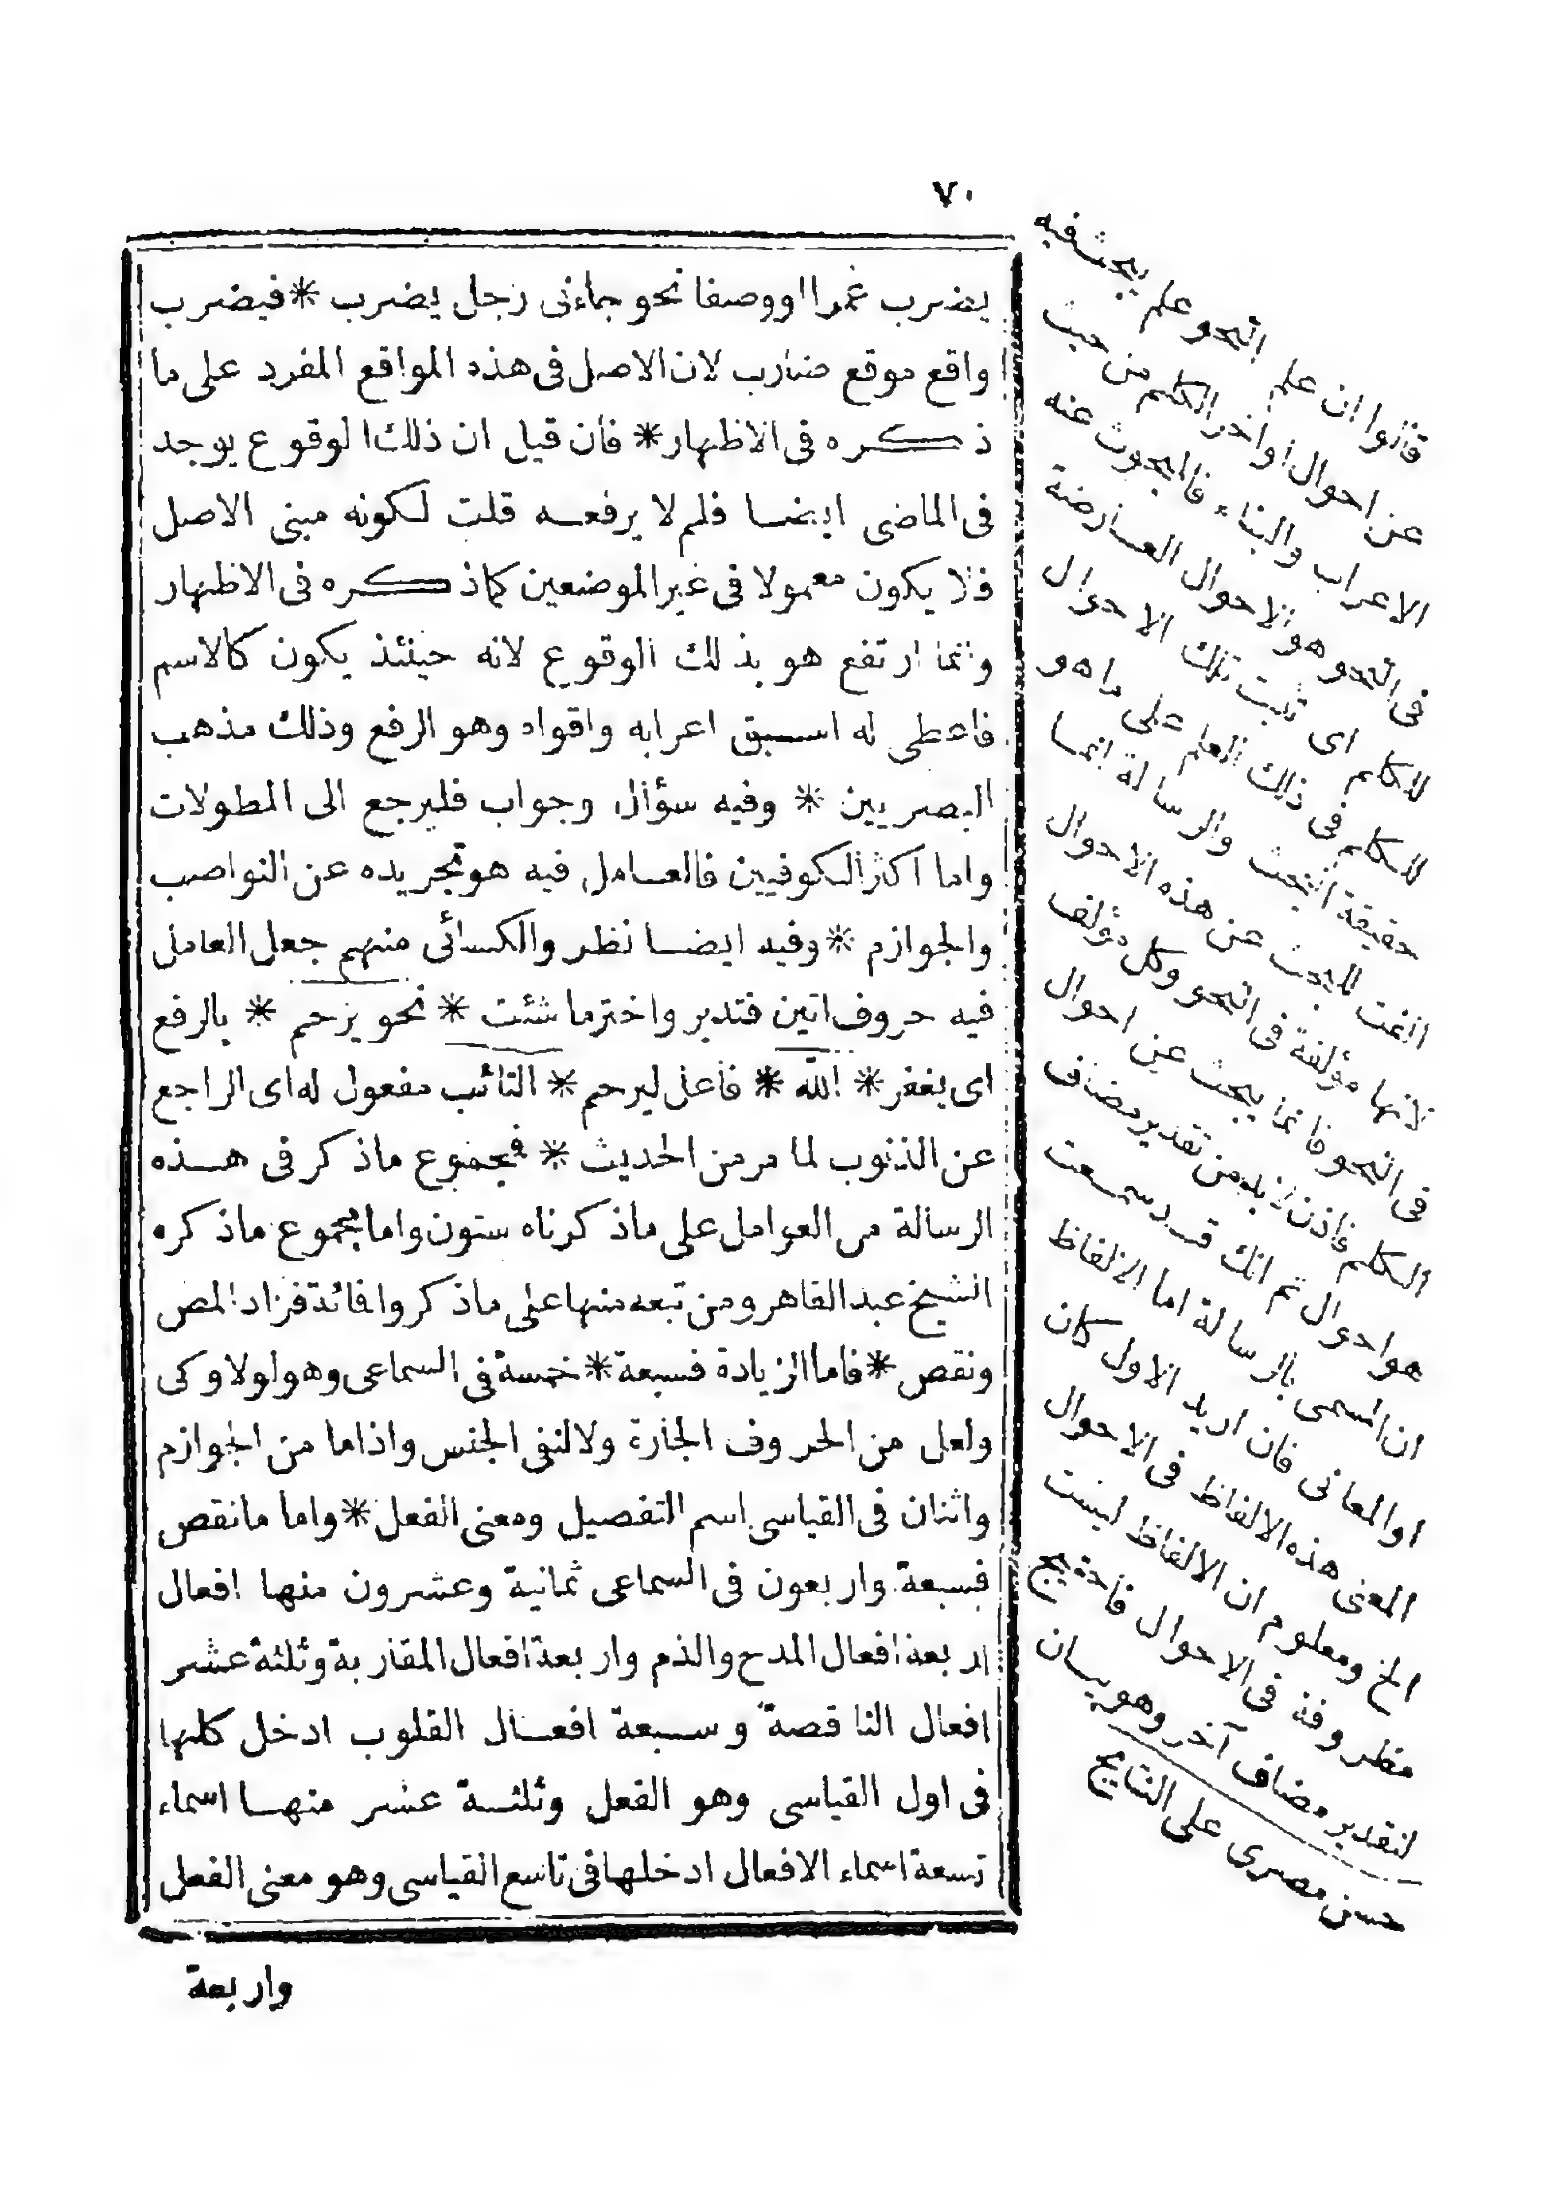 ٧٠
يضرب عمرا او وصفا نحو جاءنى رجل يضرب * فيضرب
واقع موقع ضارب لان الاصل فى هذه المواقع المفرد على ما
ذكره فى الاظهار * فان قيل ان ذلك الوقوع يوجد
فى الماضى ايضا فلم لا يرفعه قلت لكونه مبنى الاصل
فلا يكون معمولا فى غير الموضعين كما ذكره فى الاظهار
وانما ارتفع هو بذلك الوقوع لانه حينئذ يكون كالاسم
فاعطى له اسبق اعرابه واقواه وهو الرفع وذلك مذهب
البصريين * وفيه سؤال وجواب فليرجع الى المطولات
واما اكثر الكوفيين فالعامل فيه هو تجريده عن النواصب
والجوازم * وفيه ايضا نظر والكسائى منهم جعل العامل
فيه حروف اتين فتدبر واختر ما شئت * نحو يرحم * بالرفع
اى يغفر * الله * فاعل ليرحم * التائب مفعول له اى الراجع
عن الذنوب لما مر من الحديث * فمجموع ماذكر فى هذه
الرسالة من العوامل على ماذكرناه ستون واما مجموع ماذكره
الشيخ عبد القاهر ومن تبعه منها على ماذكروا فائة فزاد المص
ونقص * فاما الزيادة فسبعة * خمسة فى السماعى وهو لولا وكى
ولعل من الحروف الجارة ولا لنفى الجنس واذاما من الجوازم
واثنان فى القياسى اسم التفصيل ومعنى الفعل * واما مانقص
فسبعة واربعون فى السماعى ثمانية وعشرون منها افعال
اربعة افعال المدح والذم واربعة افعال المقاربة وثلثة عشر
افعال الناقصة وسبعة افعال القلوب ادخل كلها
فى اول القياسى وهو الفعل وثلثة عشر منها اسماء
تسعة اسماء الافعال ادخلها فى تاسع القياسى وهو معنى الفعل
واربعة
قالوا ان علم النحو علم يبحث فيه
عن احوال اواخر الكلم من حيث
الاعراب والبناء فالمبحوث عنه
فى النحو هو الاحوال العارضة
للكلم اى ثبت تلك الاحوال
للكلم فى ذلك العلم على ما هو
حقيقة البحث والرسالة انما
الفت للبحث عن هذه الاحوال
لانها مؤلفة فى النحو وكل مؤلف
فى النحو فانما يبحث عن احوال
الكلم فاذن لا بد من تقدير مضاف
هو احوال ثم انك قد سمعت
ان المسمى بالرسالة اما الالفاظ
او المعانى فان اريد الاول كان
المعنى هذه الالفاظ فى الاحوال
الخ ومعلوم ان الالفاظ ليست
مظروفة فى الاحوال فاحتيج
لتقدير مضاف آخر وهو بيان
حسن مصرى على النتايج